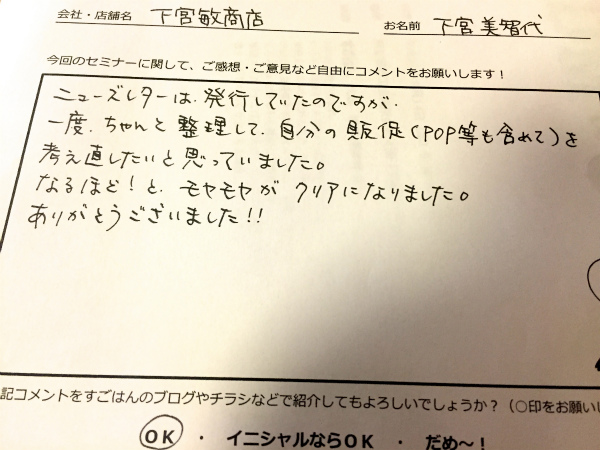 会社・店舗名 下宮敏商店 お名前 下宮美智代
今回のセミナーに関して、ご感想・ご意見など自由にコメントをお願いします！
ニューズレターは、発行していたのですが、
一度、ちゃんと整理して、自分の販促(POP等も含めて)を
考え直したいと思っていました。
なるほど！と、モヤモヤがクリアになりました。
ありがとうございました!!
記コメントをすごはんのブログやチラシなどで紹介してもよろしいでしょうか？（○印をお願いし
OK ・ イニシャルならOK ・ だめ〜！